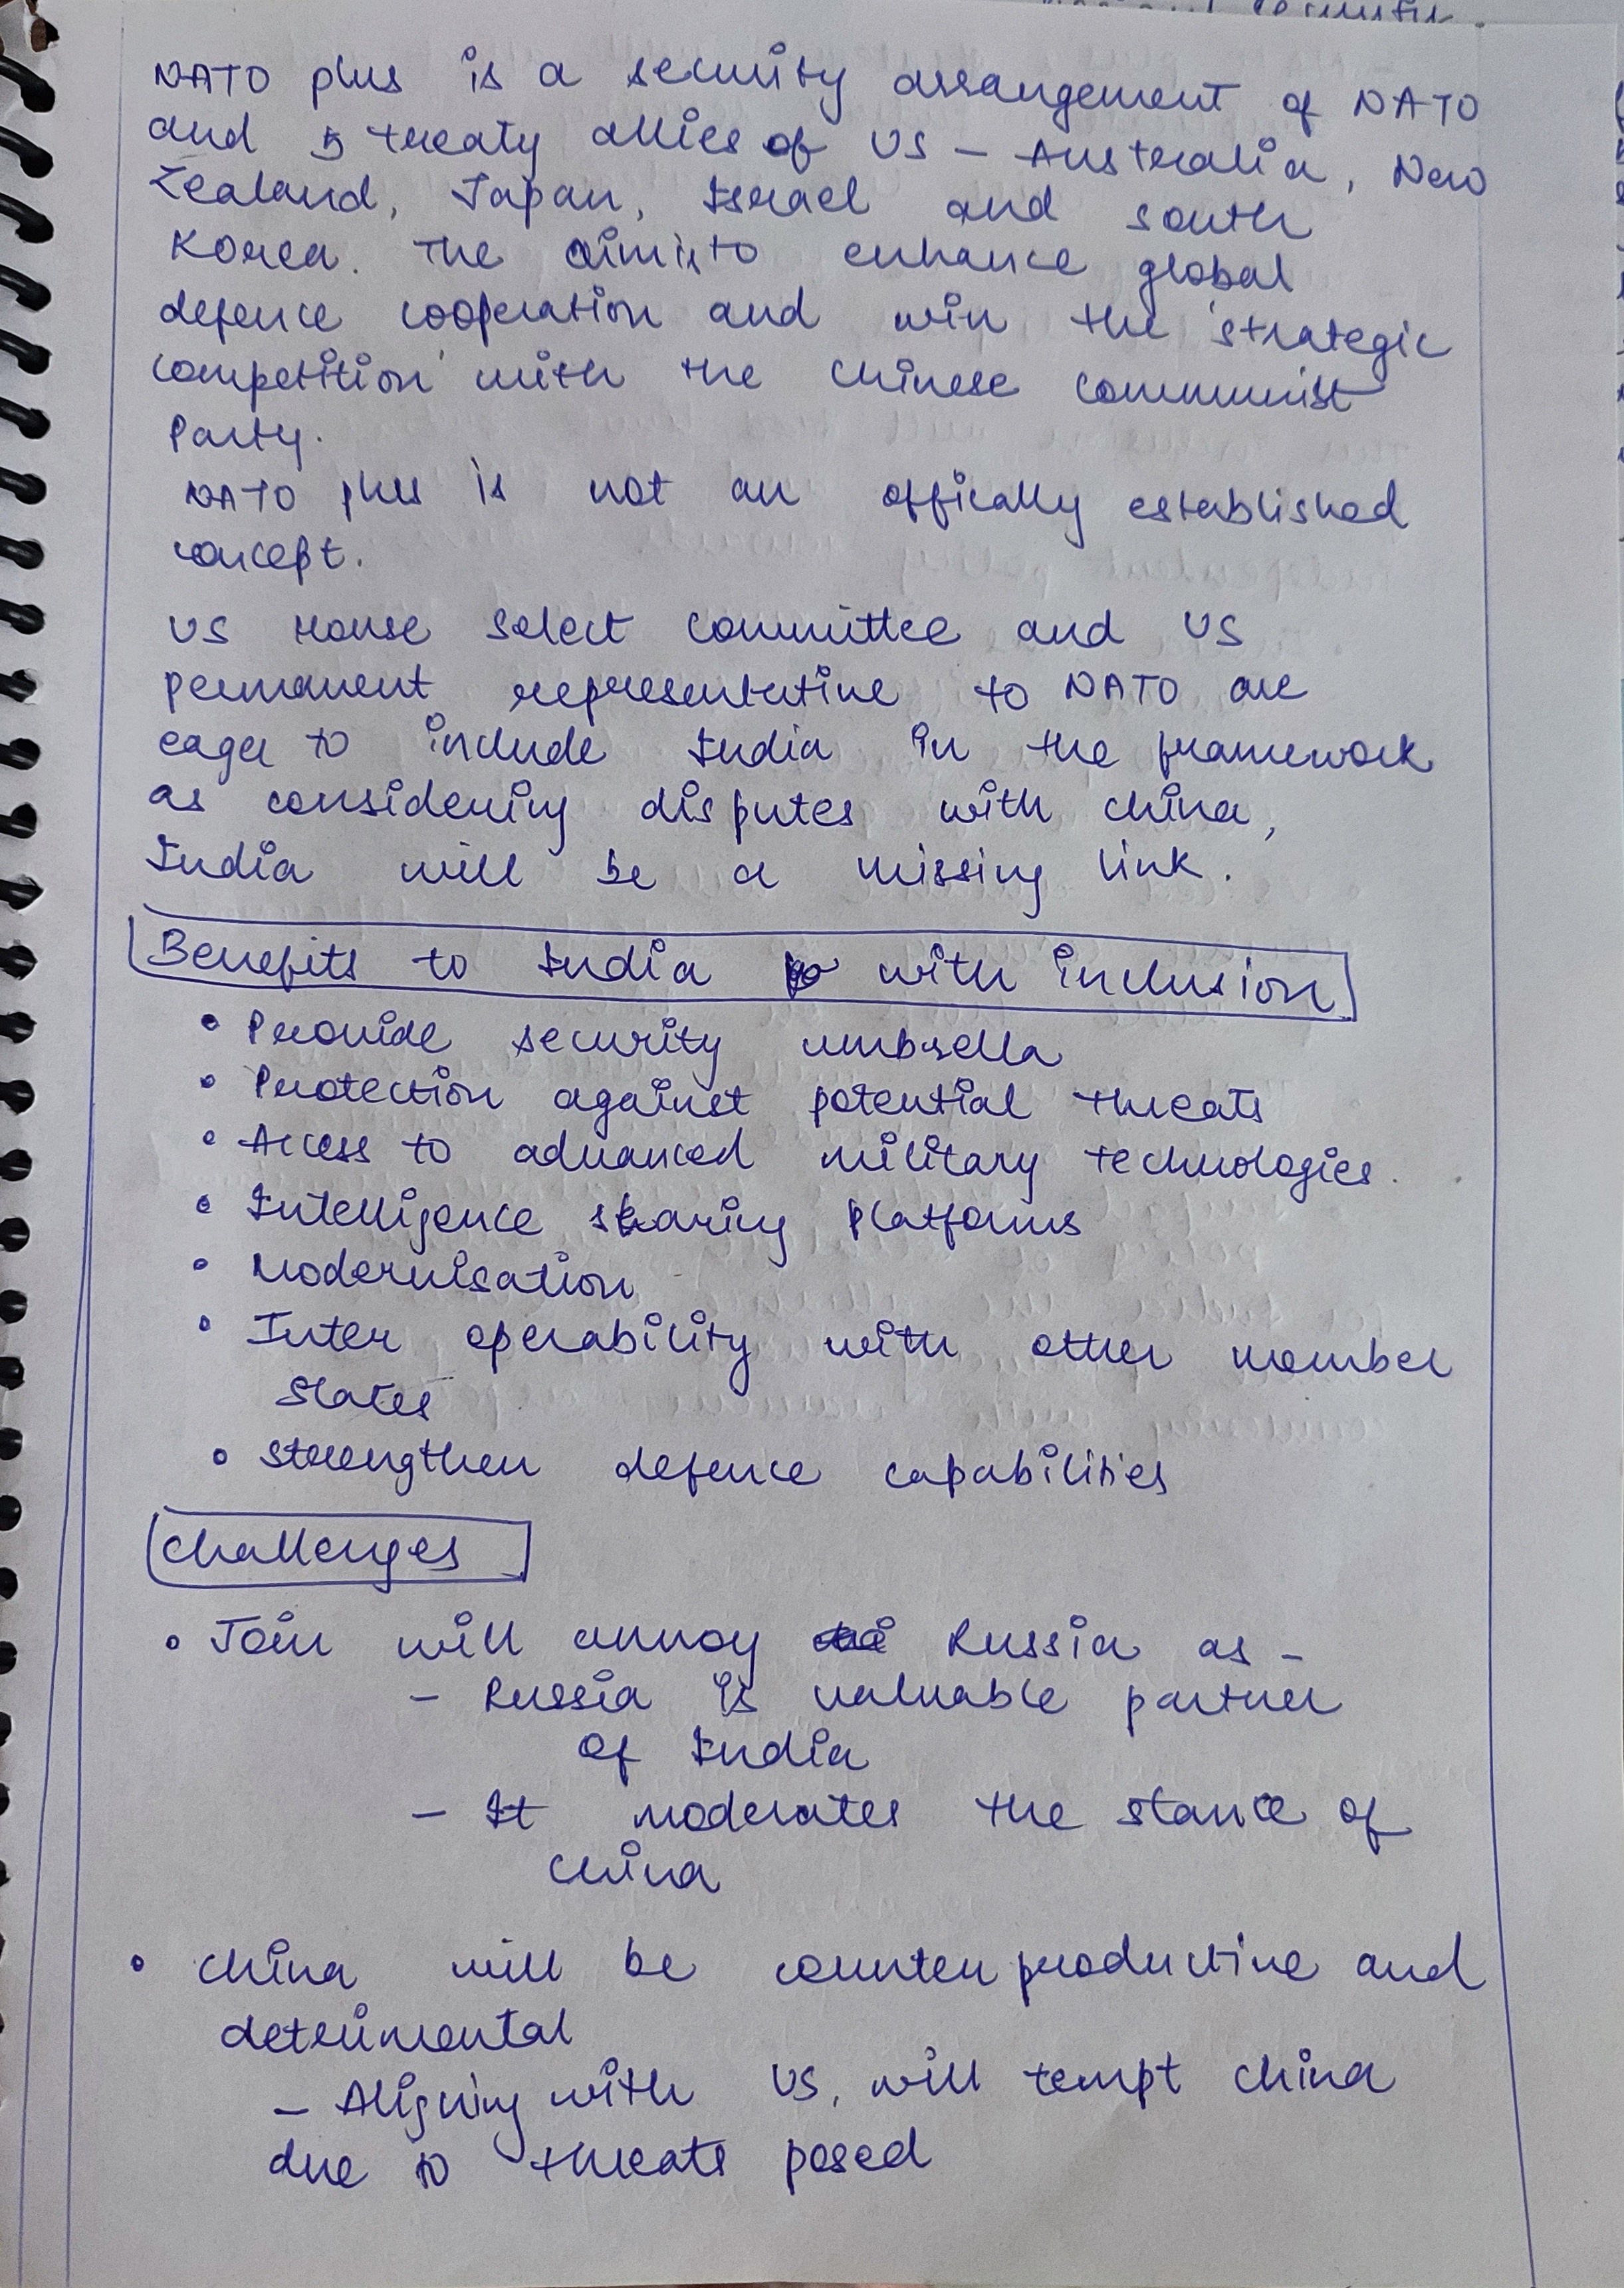 NATO plus is a security arrangement of NATO
and 5 treaty allies of US - Australia, New
Zealand, Japan, Israel and south
Korea. The aim is to enhance global
defence cooperation and win the 'strategic
competition' with the Chinese Communist
Party.
NATO plus is not an offically established
concept.
US House Select Committee and US
permanent representative to NATO are
eager to include India in the framework
as considering disputes with china,
India will be a missing link.
Benefits to India with inclusion
• Provide security umbrella
• Protection against potential threats
• Access to advanced military technologies.
• Intelligence sharing platforms
• Modernisation
• Inter operability with other member
states
• strengthen defence capabilities
Challenges
• Join will annoy Russia as -
- Russia is valuable partner
of India
- It moderates the stance of
China
• China will be counter productive and
detrimental
- Aligning with US, will tempt china
due to threats posed